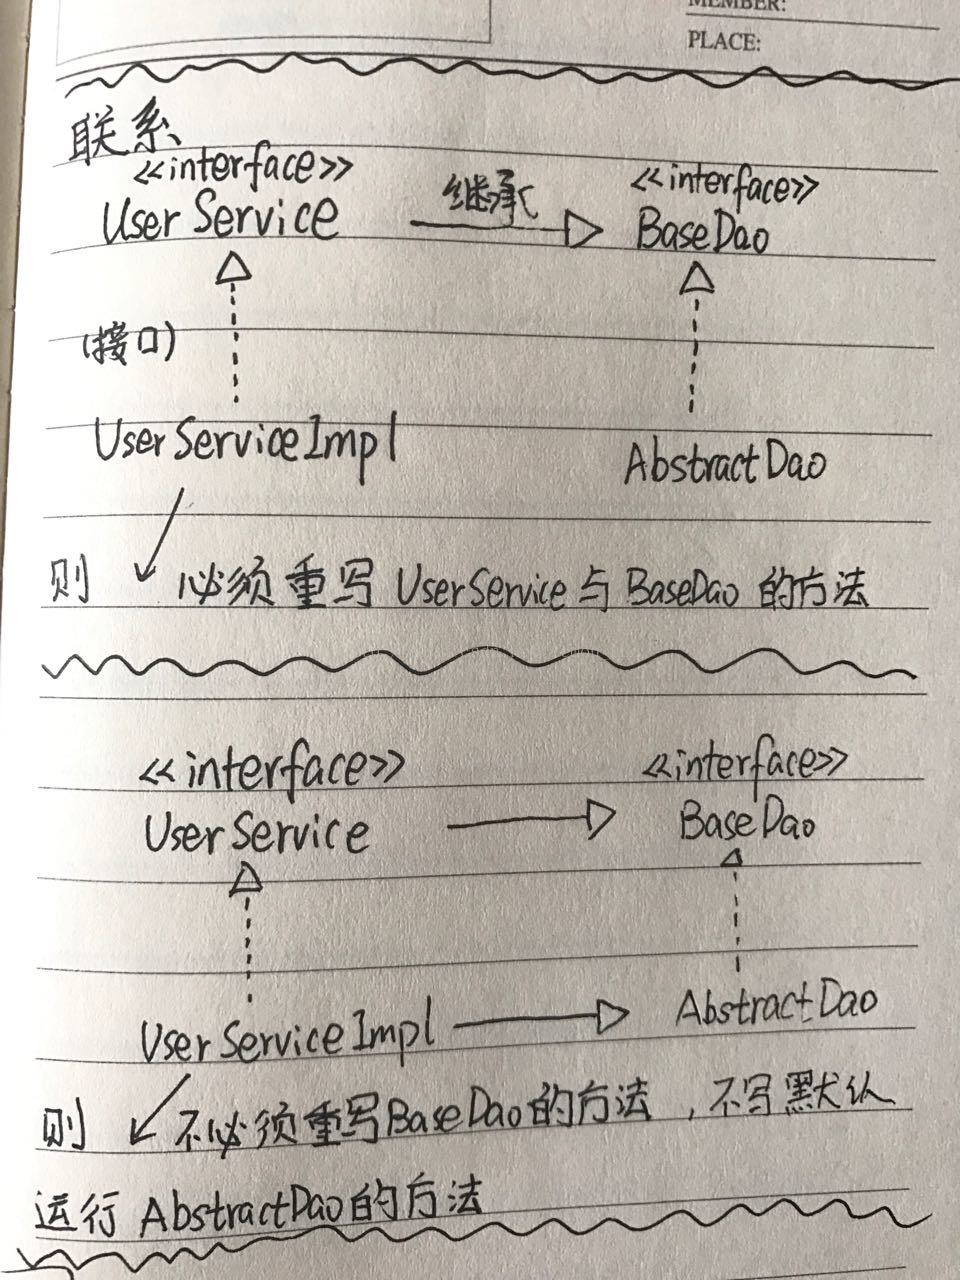 MEMBER:
PLACE:
联系
<<interface>> 继承 <<interface>>
UserService BaseDao
(接口)
UserServiceImpl AbstractDao
则 必须重写 UserService与 BaseDao 的方法
<<interface>> <<interface>>
UserService BaseDao
UserServiceImpl AbstractDao
则 不必须重写BaseDao的方法，不写默认
运行 AbstractDao的方法